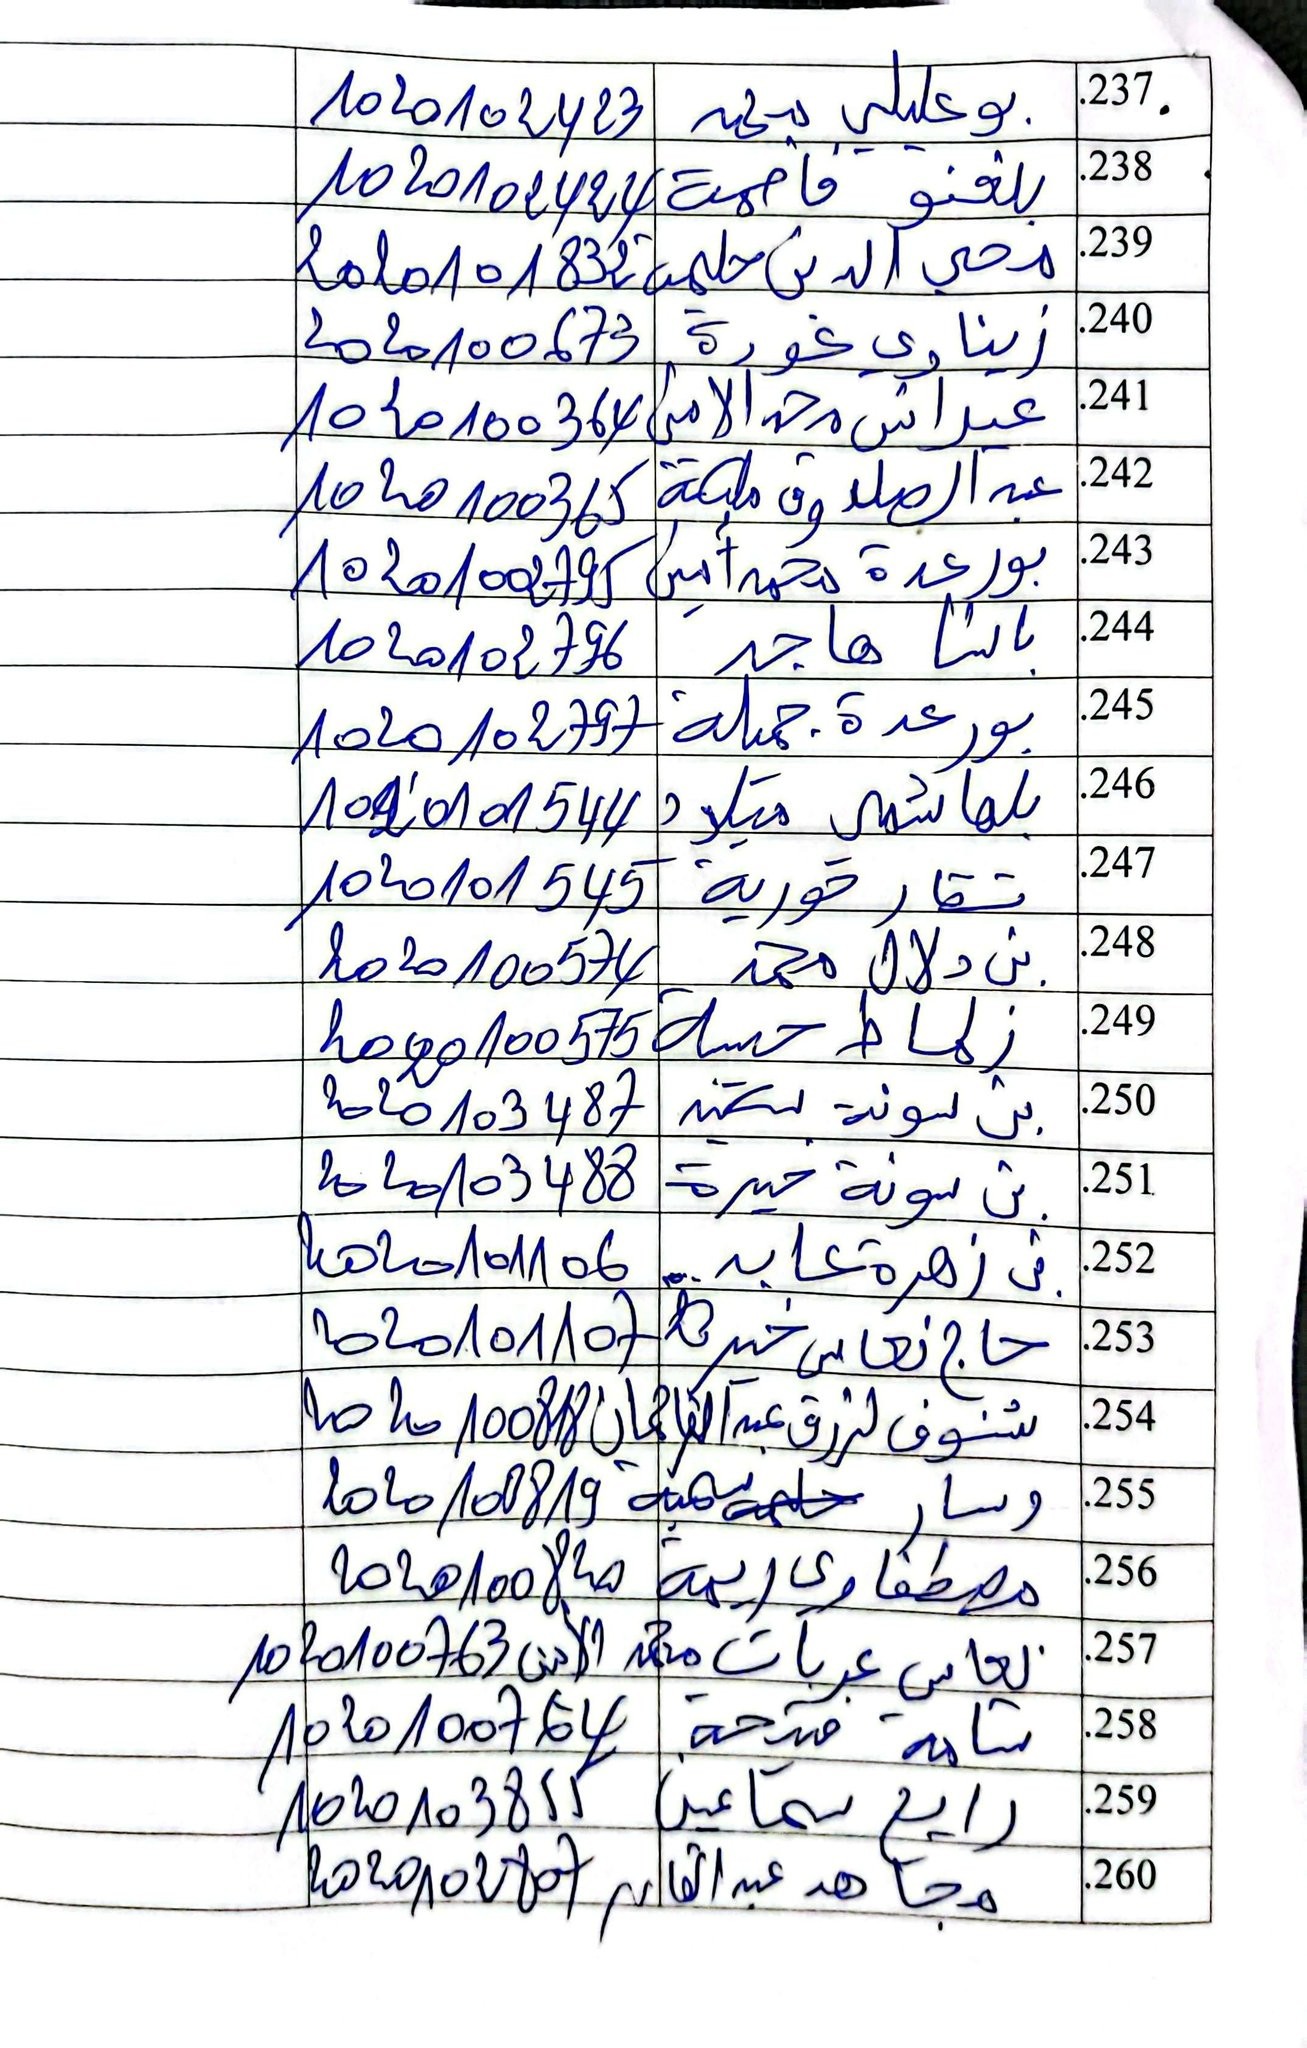 .237 بوعليلي محمد 10201102423
.238 بلغنو فاطمة 10201102424
.239 محي الدين حليمة 20201101832
.240 زيناوي غورة 2020100673
.241 عيداش محمد الامين 1020100364
.242 عبد الصدوق مليكة 1020100365
.243 بورعدة محمد أمين 10201002795
.244 باشا هاجر 1020102796
.245 بورعدة جميلة 1020102797
.246 بلهاشمي ميلود 1020101544
.247 شقار حورية 1020101545
.248 بن دلال محمد 2020100574
.249 زلماط حسنة 2020100575
.250 بن سونة 2020103487
.251 بن سونة خيرة 2020103488
.252 بن زهرة عابد 2020101106
.253 حاج نعاس خيرة 2020101107
.254 شنوف لزرق عبد 2020100818
.255 وسار سمية 2020100819
.256 مصطفاوي ريمة 2020100820
.257 نعاس عربات محمد الأمين 1020100763
.258 شامة فتيحة 1020100764
.259 رابح سماعين 1020103855
.260 مجاهد عبد القادر 2020102807